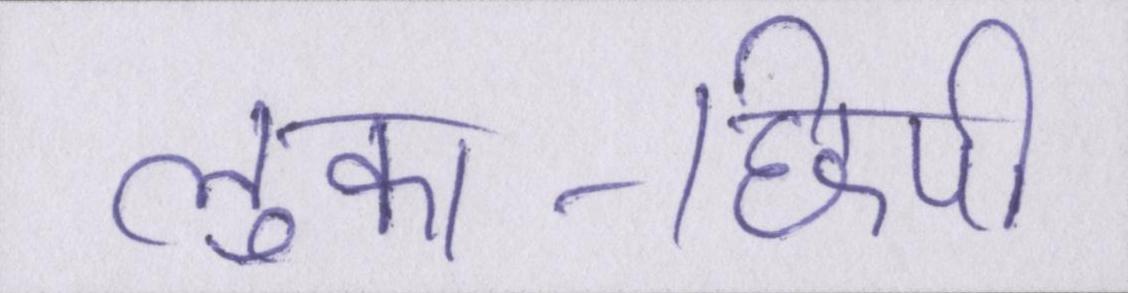 लुका-छिपी